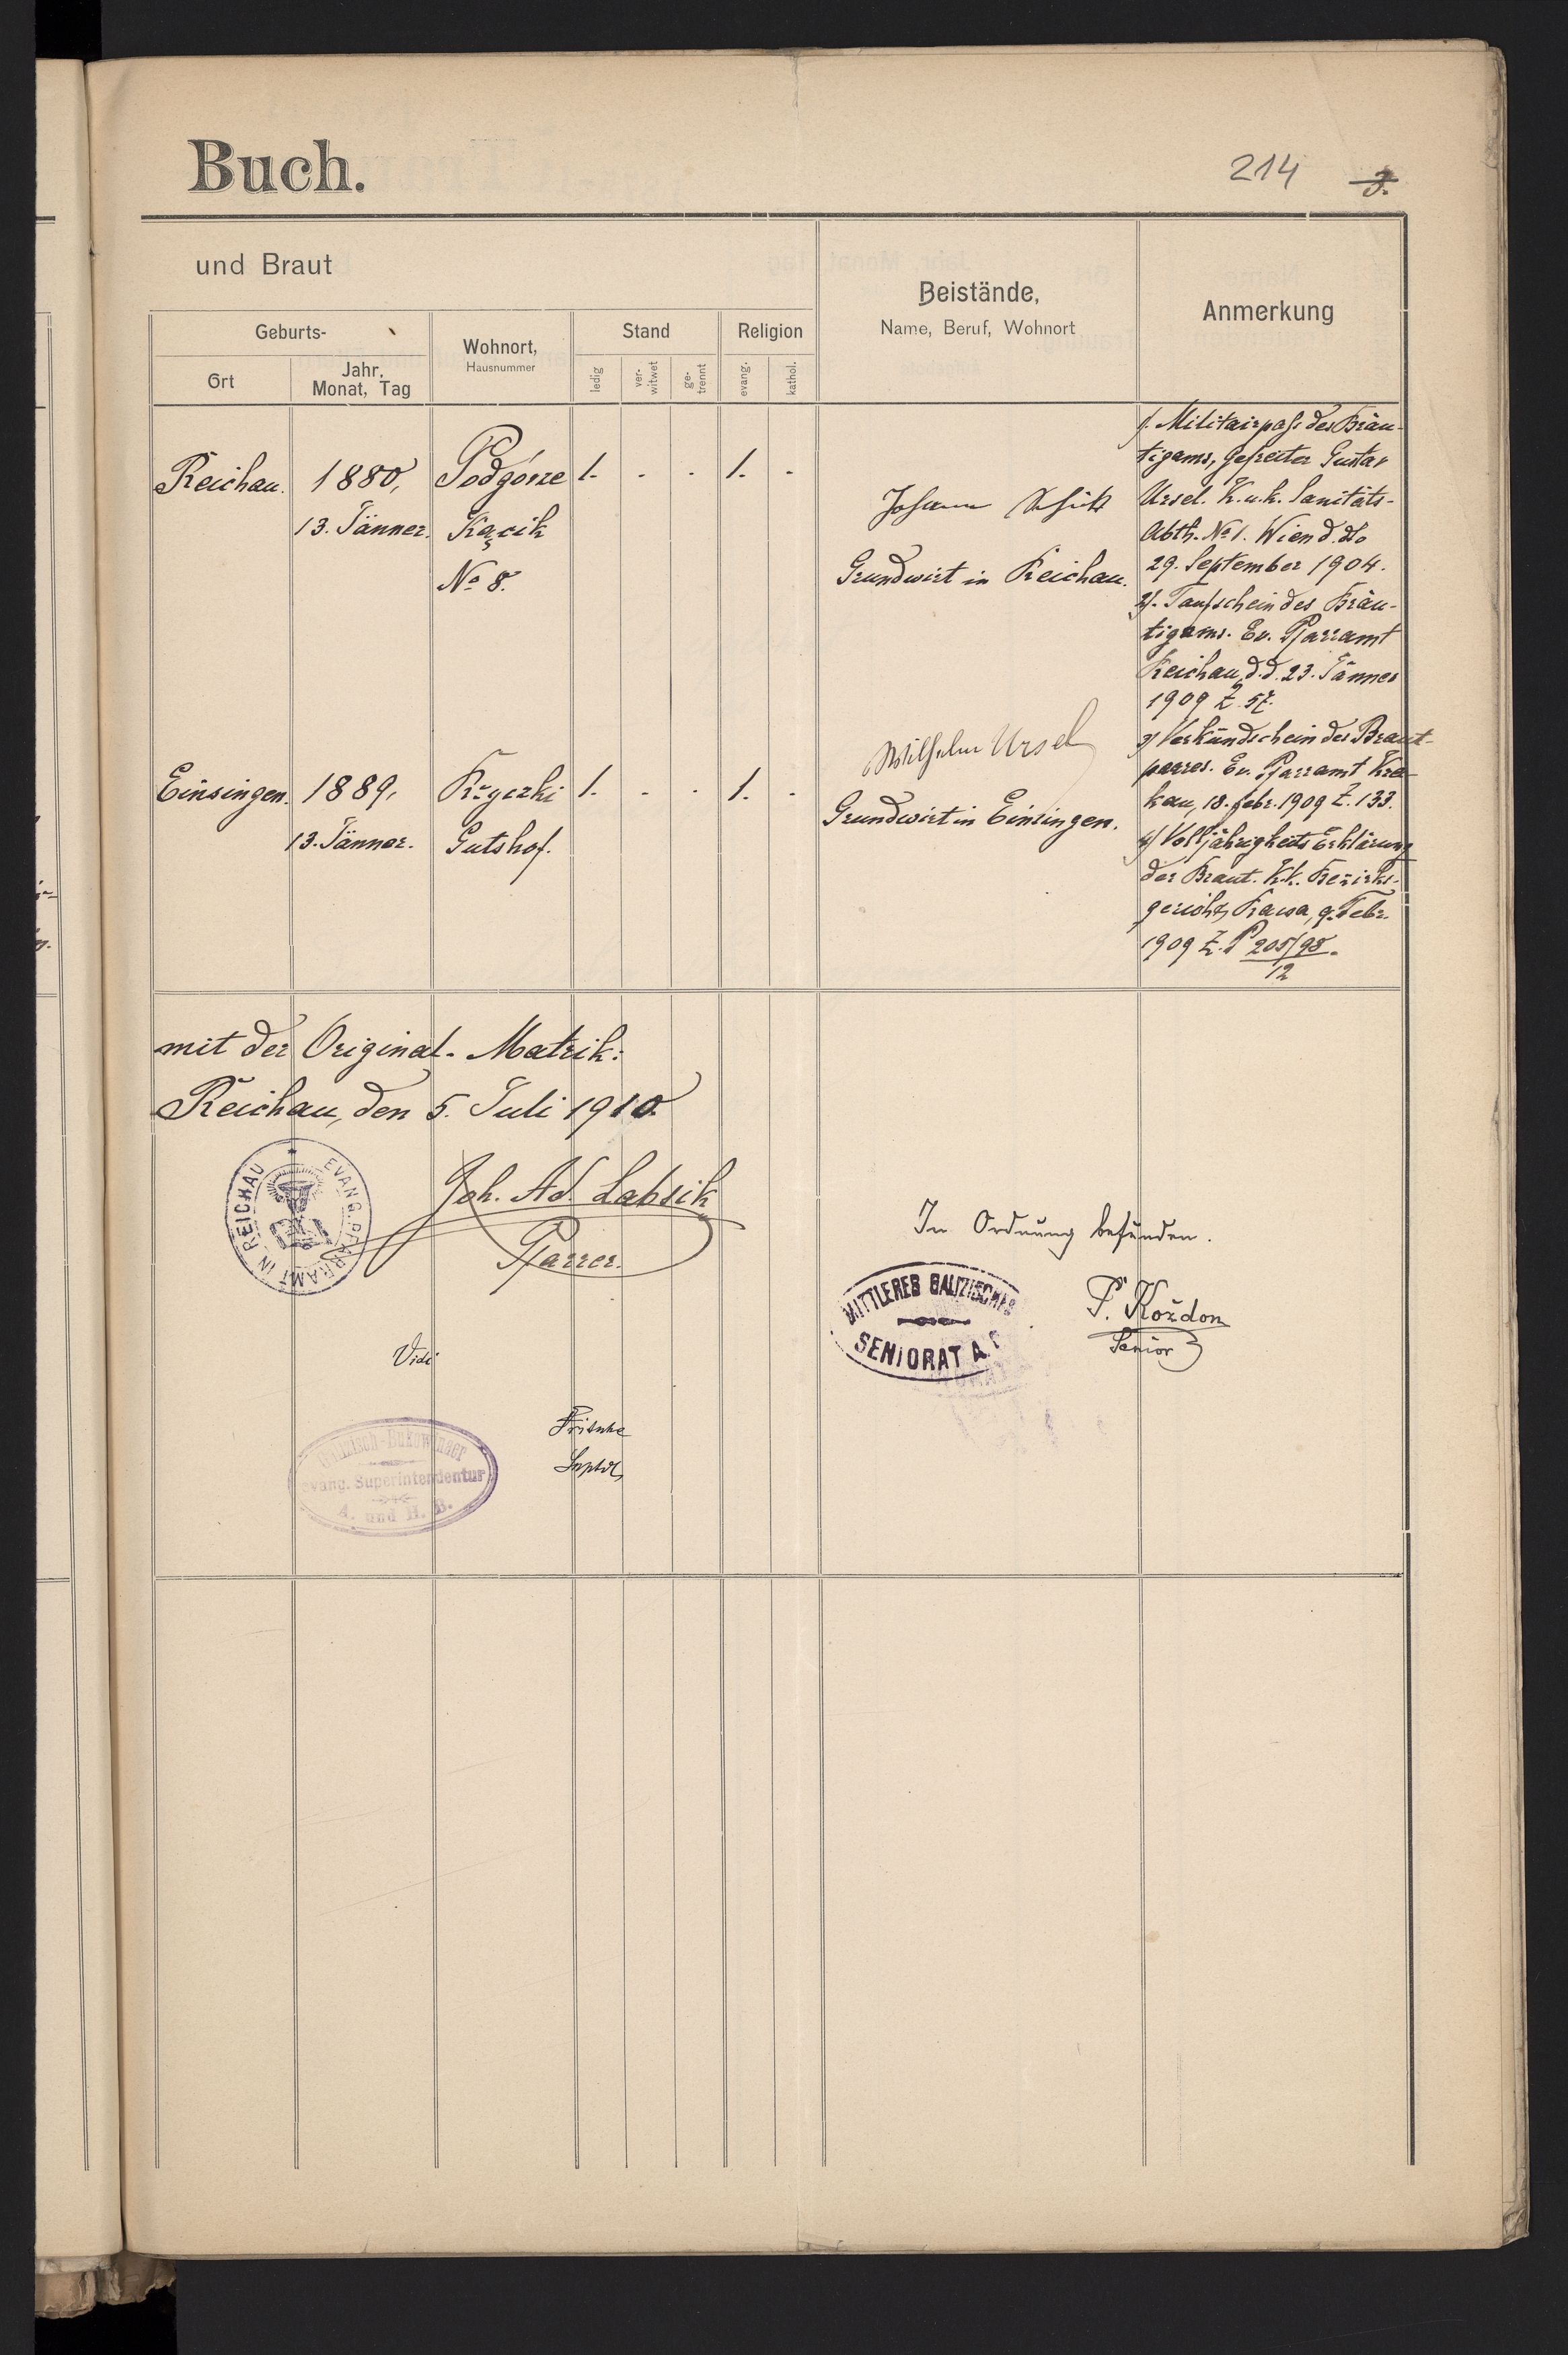 Buch.
214 3.
und Braut
Geburts-
Ort
Jahr, Monat, Tag
Wohnort, Hausnummer
Stand
ledig
ver-witwet
ge-trennt
Religion
evang.
kathol.
Beistände,
Name, Beruf, Wohnort
Anmerkung
Reichau. 1880, Podgórze 1. - - 1. -
13. Jänner. Kącik
No 8.
Johann
Grundwirt in Reichau.
1. Militairpaß des Bräu-
tigams, Gefreiter Gustav
Ursel. K.u.k. Sanitäts-
Abth. No 1. Wien d.dto
29. September 1904.
2/. Taufschein des Bräu-
tigams. Ev. Pfarramt
Reichau, d.d. 23. Jänner
1909 Z. 57.
3/ Verkündschein des Braut-
paares. Ev. Pfarramt Kra-
kau, 18. Febr. 1909 Z. 133.
4/ Volljährigkeits Erklärung
der Braut. K.k. Bezirks-
gericht, Rawa, 9. Febr.
1909 Z. P 205/98.
12
Einsingen. 1889, 1. - - 1. -
13. Jänner. Gutshof.
Wilhelm Ursel
Grundwirt in Einsingen.
mit der Original-Matrik:
Reichau, den 5. Juli 1910.
EVANG. PFARRAMT IN REICHAU
Joh. Ad. Labsik
Pfarrer.
In Ordnung befunden.
MITTLERES GALIZISCHES
SENIORAT A.
P. Kożdon
Senior
Vidi
Fritsche
Suptdt
evang. Superintendentur
A. und H. B.